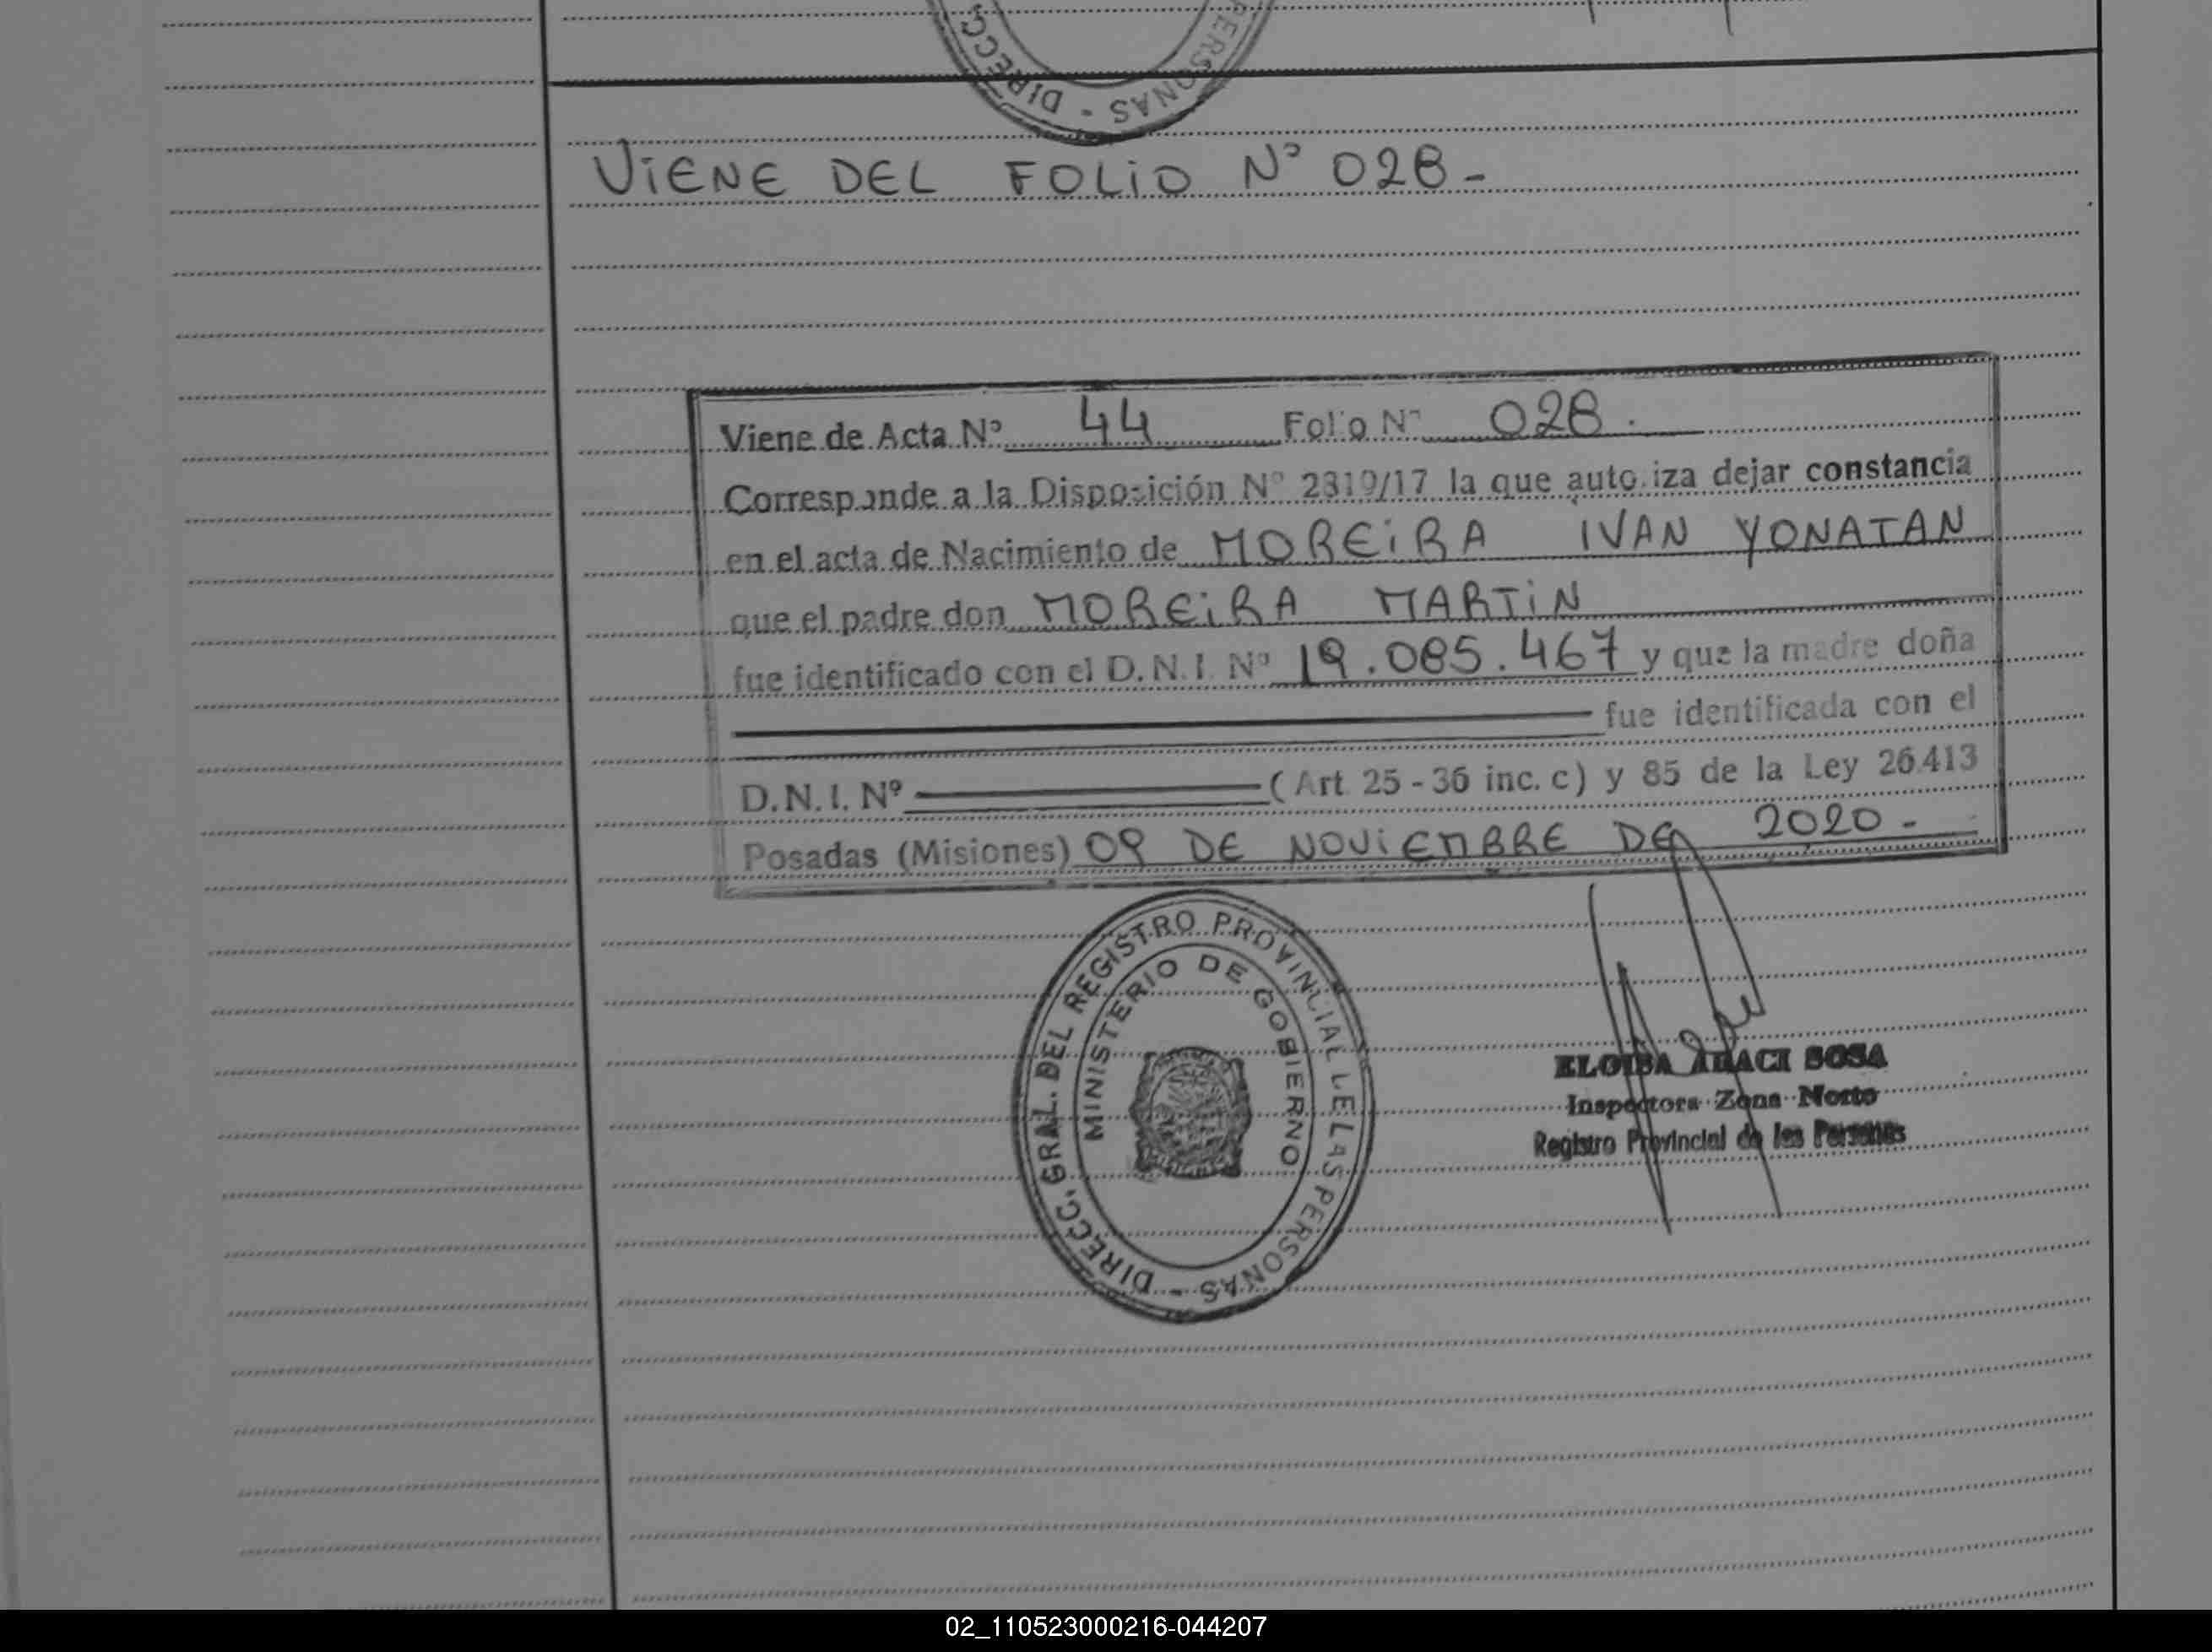 DIRECC PERSONAS -
VIENE DEL FOLIO Nº 028-
Viene de Acta Nº 44 Folio Nº 028.
Corresponde a la Disposición Nº 2319/17 la que autoriza dejar constancia
en el acta de Nacimiento de MOREIRA IVAN YONATAN
que el padre don MOREIRA MARTIN
fue identificado con el D.N.I. Nº 19.085.467 y que la madre doña
fue identificada con el
D.N.I. Nº (Art. 25 - 36 inc. c) y 85 de la Ley 26.413
Posadas (Misiones) 09 DE NOVIEMBRE DE 2020.-
DIRECC. GRAL. DEL REGISTRO PROVINCIAL DE LAS PERSONAS -
MINISTERIO DE GOBIERNO
ELOISA ARACI SOSA
Inspectora Zona Norte
Registro Provincial de las Personas
02_110523000216-044207